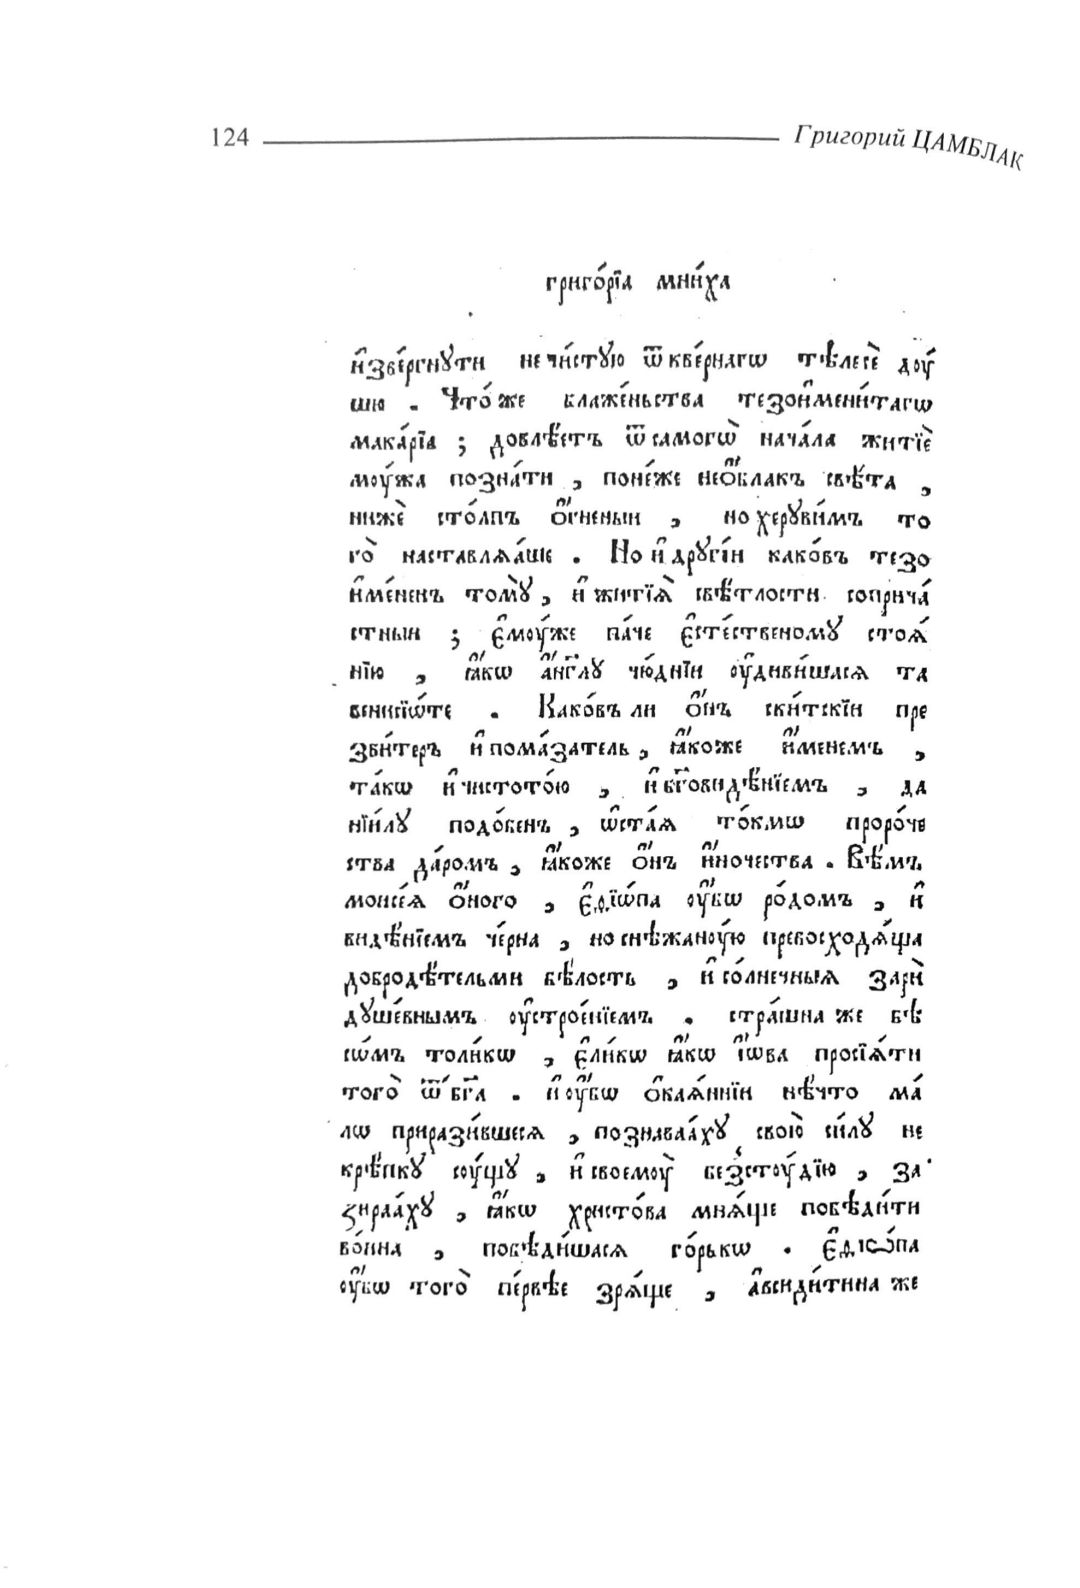 124 Григорий ЦАМБЛАК
григо́рїа мни́ха
и҆зве́ргнꙋти нечи́стꙋю ѿ кве́рнагѡ тѣлесѐ доу́
шю . Что́ же блаже́ньства тезоимени́тагѡ
мака́рїа ; довлѣ́етъ ѿ самогѡ̀ нача́ла житїѐ
моу́жа позна́ти , поне́же не ѻ҆́блакъ свѣ́та ,
нижѐ сто́лпъ ѻ҆́гненыи , но херꙋви́мъ то
го̀ наставлѧ́аше . Но и҆ дрꙋгі́и како́въ тезо
и҆ме́ненъ томꙋ̀ , и҆ житїѧ̀ свѣ́тлости соприча́
стныи ; є҆моу́же па́че є҆сте́ственомꙋ стоѧ́
нію , ꙗ҆́кѡ а҆́нг҃лꙋ чю́днїи оу҆диви́шасѧ та
венисїѡ́те . Како́въ ли ѻ҆́нъ ски́тскїи пре
зви́теръ и҆ пома́затель , ꙗ҆́коже и҆́менемъ ,
та́кѡ и҆ чистото́ю , и҆ бг҃овидѣ́нїемъ , да
нїи́лꙋ подо́бенъ , ѡ҆ста́ѧ то́кмѡ проро́че
ства да́ромъ , ꙗ҆́коже ѻ҆́нъ и҆́ночества . Вѣ́мъ
моисе́ѧ ѻ҆́ного , є҆ѳїѡ́па оу҆́бѡ ро́домъ , и҆
видѣ́нїемъ че́рна , но снѣжаноу́ю превосходѧ́ща
добродѣ́тельми бѣ́лость , и҆ со́лнечныѧ зарѝ
дꙋше́внымъ оу҆строе́нїемъ . стра́шна же бѣ
сѡ́мъ толи́кѡ , є҆ли́кѡ ꙗ҆́кѡ і҆́ѡва просїѧ́ти
того̀ ѿ бг҃а . и҆ оу҆́бѡ ѻ҆каѧ́ннїи нѣ́что ма́
лѡ приразі́вшесѧ , познаваа́хꙋ своюѐ си́лꙋ не
крѣ́пкꙋ соу́щꙋ , и҆ своемоу̀ безстоу́дїю , за
зираа́хꙋ , ꙗ҆́кѡ христо́ва мнѧ́ще побѣди́ти
во́ина , побѣди́шасѧ го́рькѡ . є҆ѳїѡ́па
оу҆́бѡ того̀ пе́рвѣе зрѧ́ще , а҆ѵсиди́тина же